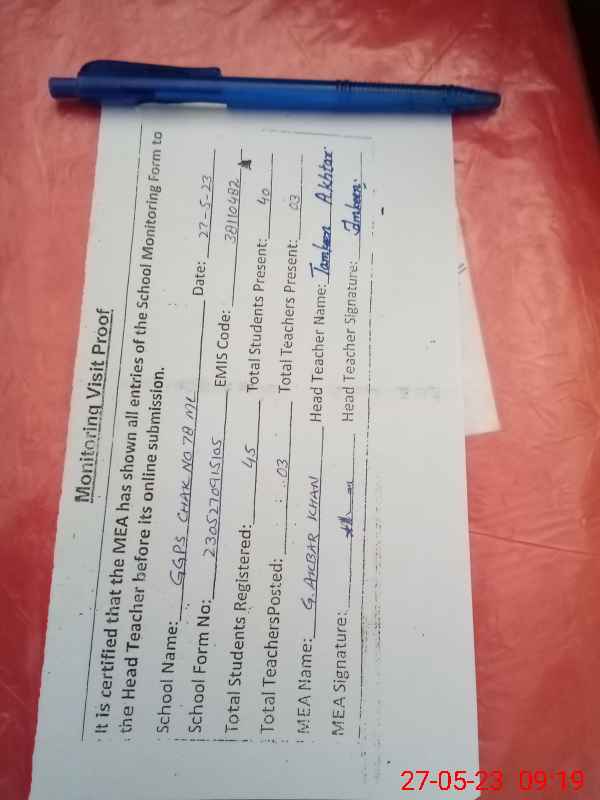 Monitoring Visit Proof
It is certified that the MEA has shown all entries of the School Monitoring Form to
the Head Teacher before its online submission.
School Name: GGPS CHAK NO 78 ML Date: 27-5-23
School Form No: 2305270915105 EMIS Code: 38110482
Total Students Registered: 45 Total Students Present: 40
Total TeachersPosted: 03 Total Teachers Present: 03
MEA Name: G. AKBAR KHAN Head Teacher Name: Akhtar
MEA Signature: Head Teacher Signature:
27-05-23 09:19